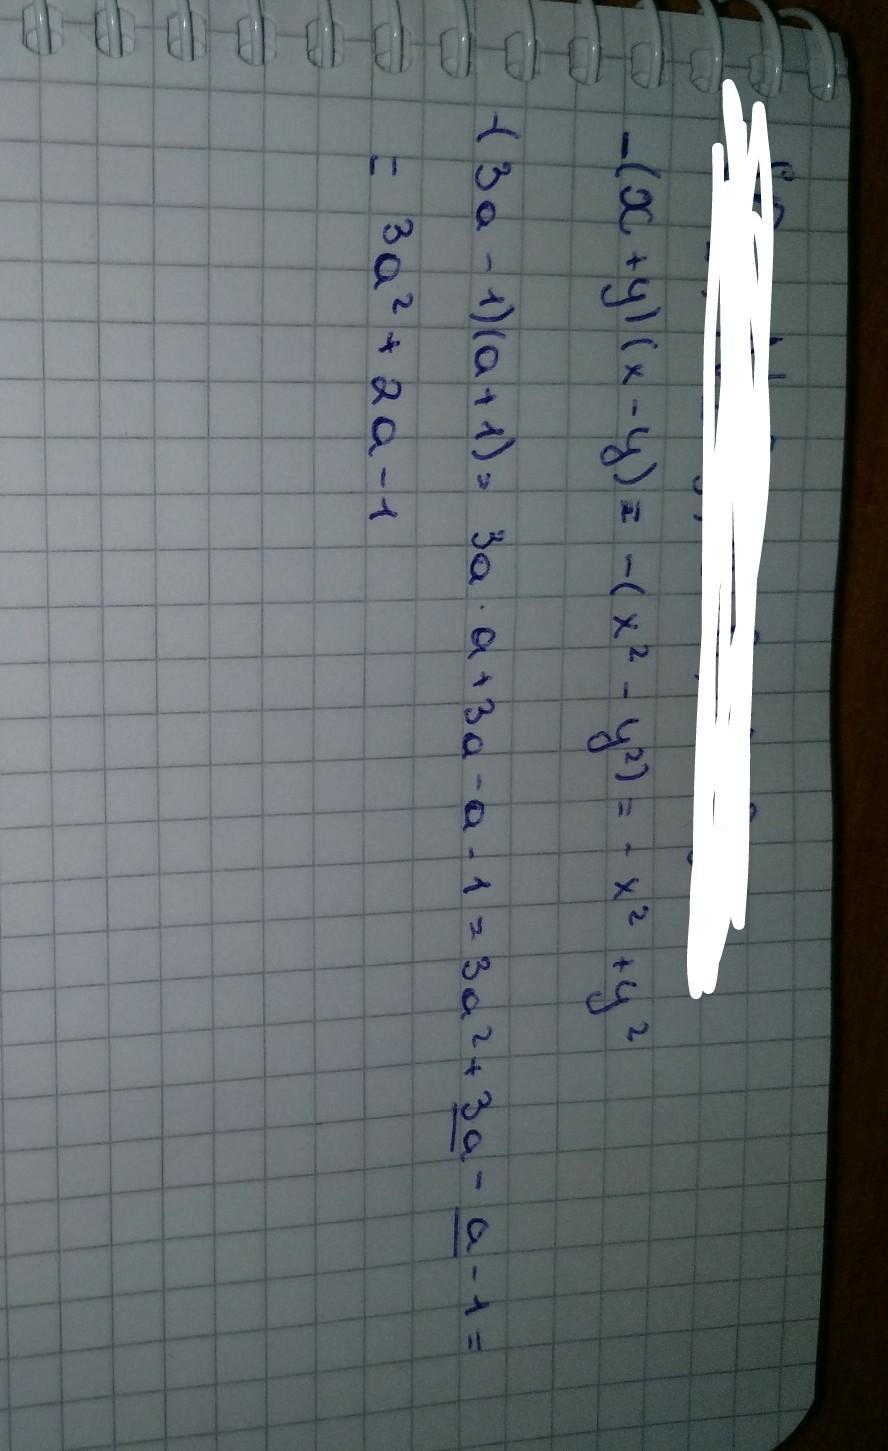 -(x+y)(x-y) = -(x² - y²) = -x² + y²
-(3a - 1)(a+1) = 3a · a + 3a - a - 1 = 3a² + 3a - a - 1 =
= 3a² + 2a - 1